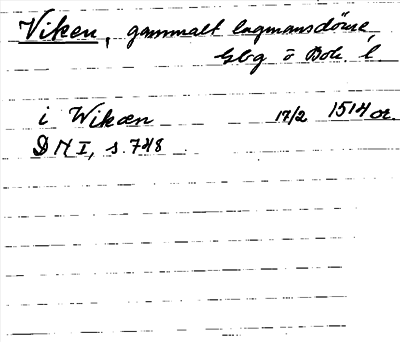 Viken, gammalt lagmansdöme,
Gbg o Boh l
i Wikæn 17/2 1514 or.
DN I, s. 748